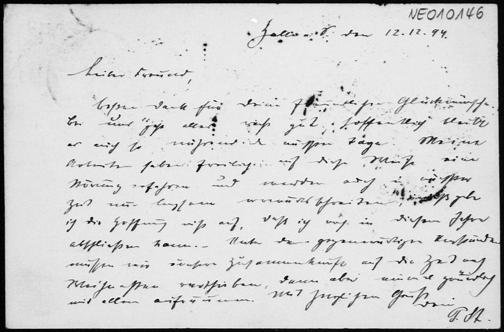 NE010146
Halle a. S., den 12.12.94.
Lieber Freund,
besten Dank für Deine freundlichen Glückwünsche.
Bei uns geht alles recht gut, hoffentlich bleibt
es auch so während der nächsten Tage. Meine
Arbeiten haben freilich auf diese Weise eine
Störung erfahren und werden auch in nächster
Zeit nur langsam vorwärtsschreiten, gebe
ich die Hoffnung nicht auf, daß ich noch in diesem Jahre
abschließen kann. Unter den gegenwärtigen Umständen
müssen wir unsere Zusammenkunft auf die Zeit nach
Weihnachten verschieben, dann aber einmal gründlich
mit allem aufräumen. Mit herzlichem Gruß
Dein
P. St.